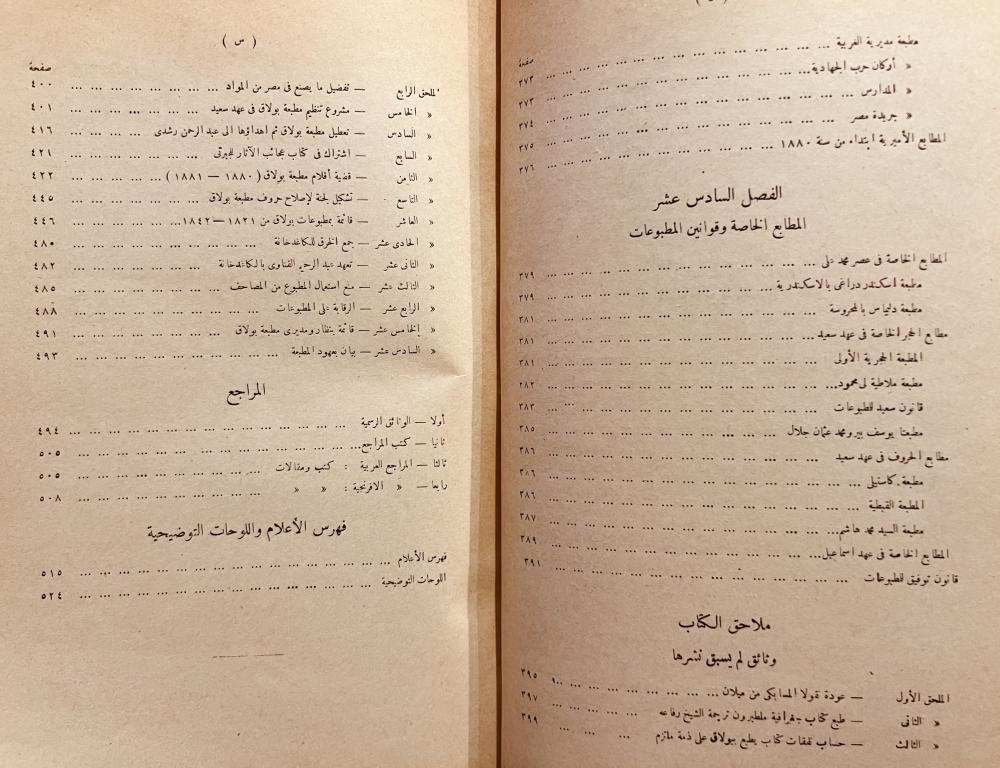 صفحة
مطبعة مديرية الغربية ... ٣٧٣
« أركان حرب الجهادية ... ٣٧٣
« المدارس ... ٣٧٤
« جريدة مصر ... ٣٧٥
المطابع الأميرية ابتداء من سنة ١٨٨٠ ... ٣٧٦
الفصل السادس عشر
المطابع الخاصة وقوانين المطبوعات
المطابع الخاصة فى عصر محمد على ... ٣٧٩
مطبعة اسكندر دراغى بالاسكندرية ... ٣٧٩
مطبعة دلياس بالمحروسة ... ٣٨١
مطابع الحجر الخاصة فى عهد سعيد ... ٣٨١
المطبعة الحجرية الأولى ... ٣٨١
مطبعة ملاطية لى محمود ... ٢٨٢
قانون سعيد للطبوعات ... ٣٨٣
مطبعتا يوسف بير ومحمد عثمان جلال ... ٣٨٥
مطابع الحروف فى عهد سعيد ... ٣٨٦
مطبعة كاستيلى ... ٣٨٦
المطبعة القبطية ... ٣٨٦
مطبعة السيد محمد هاشم ... ٣٨٧
المطابع الخاصة فى عهد اسماعيل ... ٣٨٩
قانون توفيق للطبوعات ... ٣٩١
ملاحق الكتاب
وثائق لم يسبق نشرها
الملحق الأول — عودة نقولا المسابكى من ميلان ... ٣٩٥
« الثانى — طبع كتاب جغرافية ملطبرون ترجمة الشيخ رفاعه ... ٣٩٧
« الثالث — حساب نفقات كتاب يطبع ببولاق على ذمة ملتزم ... ٣٩٩
( س )
صفحة
الملحق الرابع — تفضيل ما يصنع فى مصر من المواد ... ٤٠٠
« الخامس — مشروع تنظيم مطبعة بولاق فى عهد سعيد ... ٤٠١
« السادس — تعطيل مطبعة بولاق ثم اهداؤها الى عبد الرحمن رشدى ... ٤١٦
« السابع — اشتراك فى كتاب عجائب الآثار للجبرتى ... ٤٢١
« الثامن — قضية أقلام مطبعة بولاق ( ١٨٨٠ — ١٨٨١ ) ... ٤٢٢
« التاسع — تشكيل لجنة لإصلاح حروف مطبعة بولاق ... ٤٤٥
« العاشر — قائمة بمطبوعات بولاق من ١٨٢١ — ١٨٤٢ ... ٤٤٦
« الحادى عشر — جمع الخرق للكاغدخانة ... ٤٨٠
« الثانى عشر — تعهد عبد الرحيم القناوى بالكاغدخانة ... ٤٨٢
« الثالث عشر — منع استعمال المطبوع من المصاحف ... ٤٨٥
« الرابع عشر — الرقابة على المطبوعات ... ٤٨٨
« الخامس عشر — قائمة بنظار ومديرى مطبعة بولاق ... ٤٩١
« السادس عشر — بيان بعهود المطبعة ... ٤٩٣
المراجع
أولا — الوثائق الرسمية ... ٤٩٤
ثانيا — كتب المراجع ... ٥٠٥
ثالثا — المراجع العربية : كتب ومقالات ... ٥٠٥
رابعا — « الافرنجية : « « ... ٥٠٨
فهرس الأعلام واللوحات التوضيحية
فهرس الأعلام ... ٥١٥
اللوحات التوضيحية ... ٥٢٤